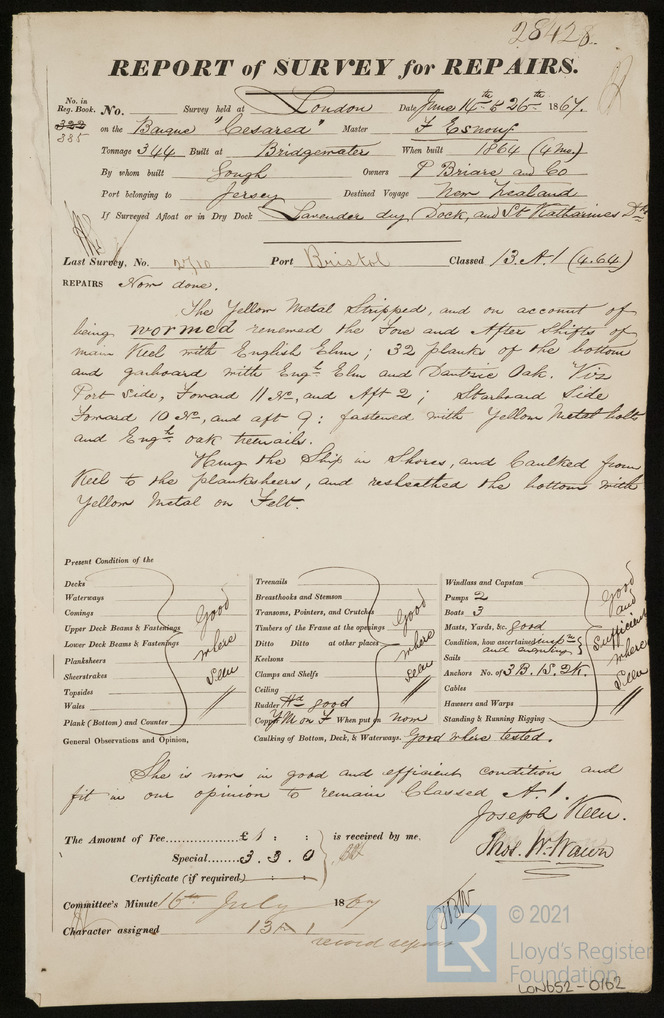 28428.
REPORT of SURVEY for REPAIRS.
No. in Reg. Book. No. Survey held at London Date June 14th & 26th 1867.
322
385
on the Barque "Cesarea" Master F Esnouf
Tonnage 344 Built at Bridgewater When built 1864 (4 mo.)
By whom built Gough Owners P Briard and Co
Port belonging to Jersey Destined Voyage New Zealand
If Surveyed Afloat or in Dry Dock Lavender dry Dock, and St Katharines Dk
Last Survey, No. Port Bristol Classed 13. A.1 (4.64.)
REPAIRS Now done.
The Yellow Metal Stripped, and on account of
being wormed renewed the Fore and After Shifts of
main Keel with English Elm; 32 planks of the bottom
and garboard with Engh Elm and Dantzic Oak. Viz
Port side, Forward 11 No, and Aft 2; Starboard Side
Forward 10 No, and aft 9: fastened with Yellow Metal bolts
and Engh oak treenails.
Hung the Ship in Shores, and Caulked from
Keel to the planksheers, and resheathed the bottom with
Yellow Metal on Felt.
Present Condition of the
Decks
Waterways
Comings
Upper Deck Beams & Fastenings
Lower Deck Beams & Fastenings
Planksheers
Sheerstrakes
Topsides
Wales
Plank (Bottom) and Counter
Good
where
seen
Treenails
Breasthooks and Stemson
Transoms, Pointers, and Crutches
Timbers of the Frame at the openings
Ditto Ditto at other places
Keelsons
Clamps and Shelfs
Ceiling
Good
where
seen
Rudder Hd good
Copper YM on F When put on now
Windlass and Capstan
Pumps 2
Boats 3
Masts, Yards, &c. good
Condition, how ascertained
Sails
Anchors No. of 3 B. 1 S. 2 K.
Cables
Hawsers and Warps
Standing & Running Rigging
Good
and
sufficient
where
seen
General Observations and Opinion, Caulking of Bottom, Deck, & Waterways. Good where tested.
She is now in good and efficient condition and
fit in our opinion to remain Classed A.1.
Joseph Keen.
Thos. W. Wawn
The Amount of Fee £1 : : is received by me,
Special 3. 3. 0
Certificate (if required)
Committee's Minute 16th July 1867
Character assigned 13 A 1
record repairs
© 2021
LR
Lloyd's Register
Foundation
LON652-0162